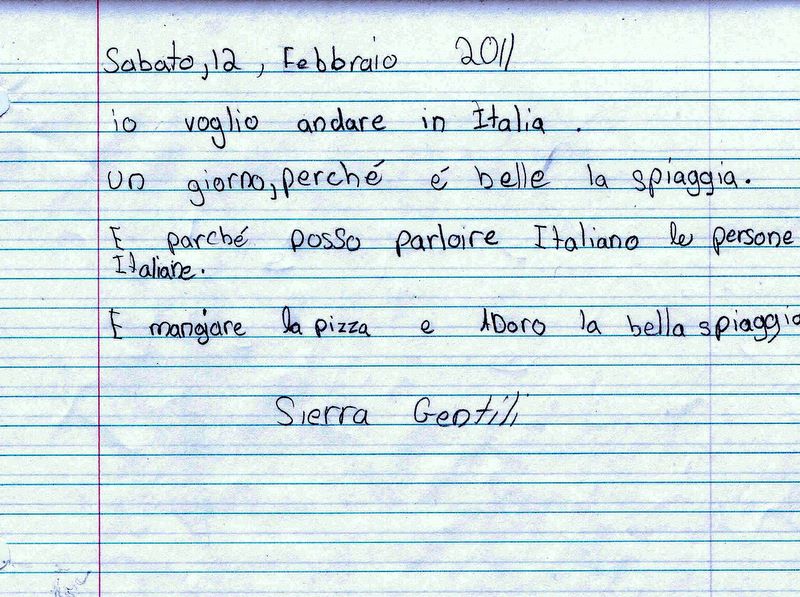 Sabato, 12, Febbraio 2011
io voglio andare in Italia.
un giorno, perché é belle la spiaggia.
E parché posso parloire Italiano le persone
Italiane.
E mangiare la pizza e ADoro la bella spiaggia
Sierra Gentili